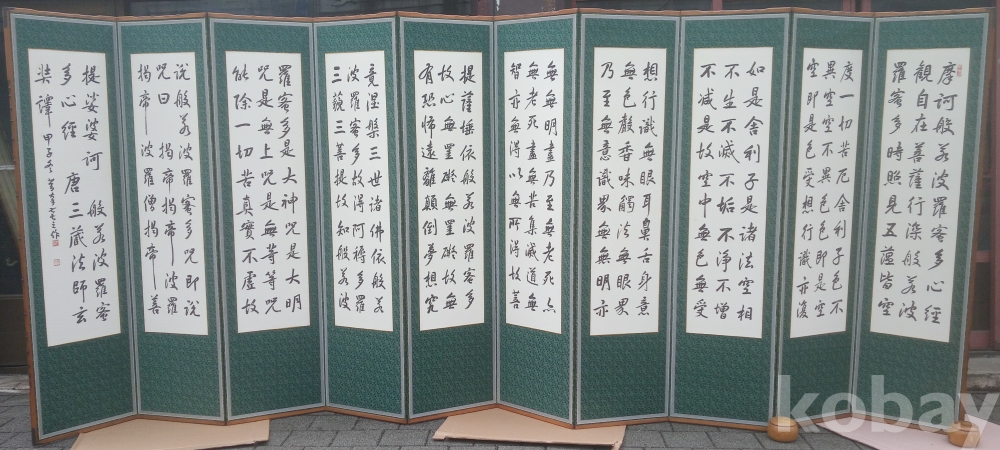 摩訶般若波羅蜜多心經
觀自在菩薩行深般若波
羅蜜多時照見五蘊皆空
度一切苦厄舍利子色不
異空空不異色色即是空
空即是色受想行識亦復
如是舍利子是諸法空相
不生不滅不垢不淨不增
不減是故空中無色無受
想行識無眼耳鼻舌身意
無色聲香味觸法無眼界
乃至無意識界無無明亦
無無明盡乃至無老死亦
無老死盡無苦集滅道無
智亦無得以無所得故菩
提薩埵依般若波羅蜜多
故心無罣礙無罣礙故無
有恐怖遠離顛倒夢想究
竟涅槃三世諸佛依般若
波羅蜜多故得阿耨多羅
三藐三菩提故知般若波
羅蜜多是大神呪是大明
呪是無上呪是無等等呪
能除一切苦真實不虛故
說般若波羅蜜多呪即說
呪曰 揭帝揭帝 波羅
揭帝 波羅僧揭帝 菩
提娑婆訶 般若波羅蜜
多心經 唐三藏法師玄
奘譯 甲子冬
kobay